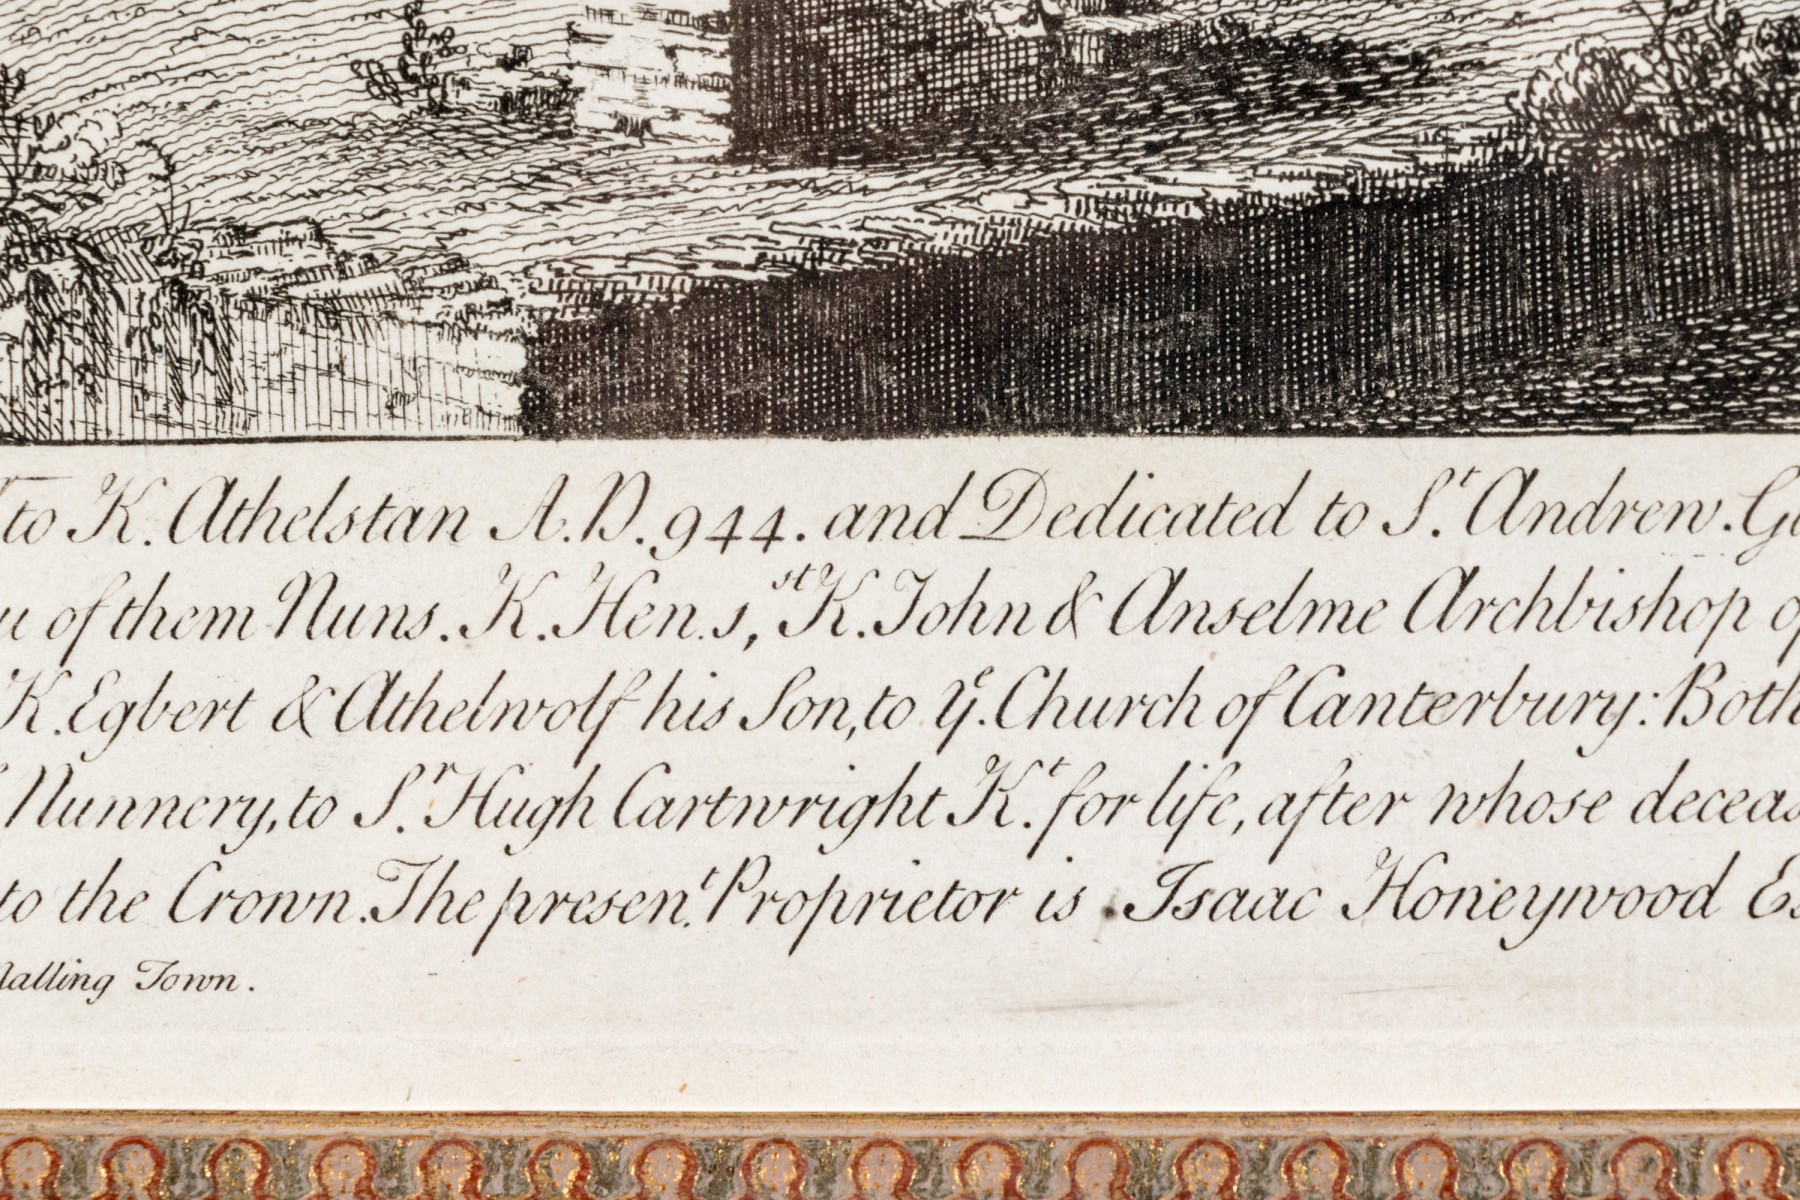 to K. Athelstan A.D. 944. and Dedicated to S.t Andrew.
of them Nuns. K. Hen. 1,st K. John & Anselme Archbishop
K. Egbert & Athelwolf his Son, to y.e Church of Canterbury: Both
Nunnery, to S.r Hugh Cartwright K.t for life, after whose deceas
to the Crown. The presen.t Proprietor is Isaac Honeywood Es
Malling Town.